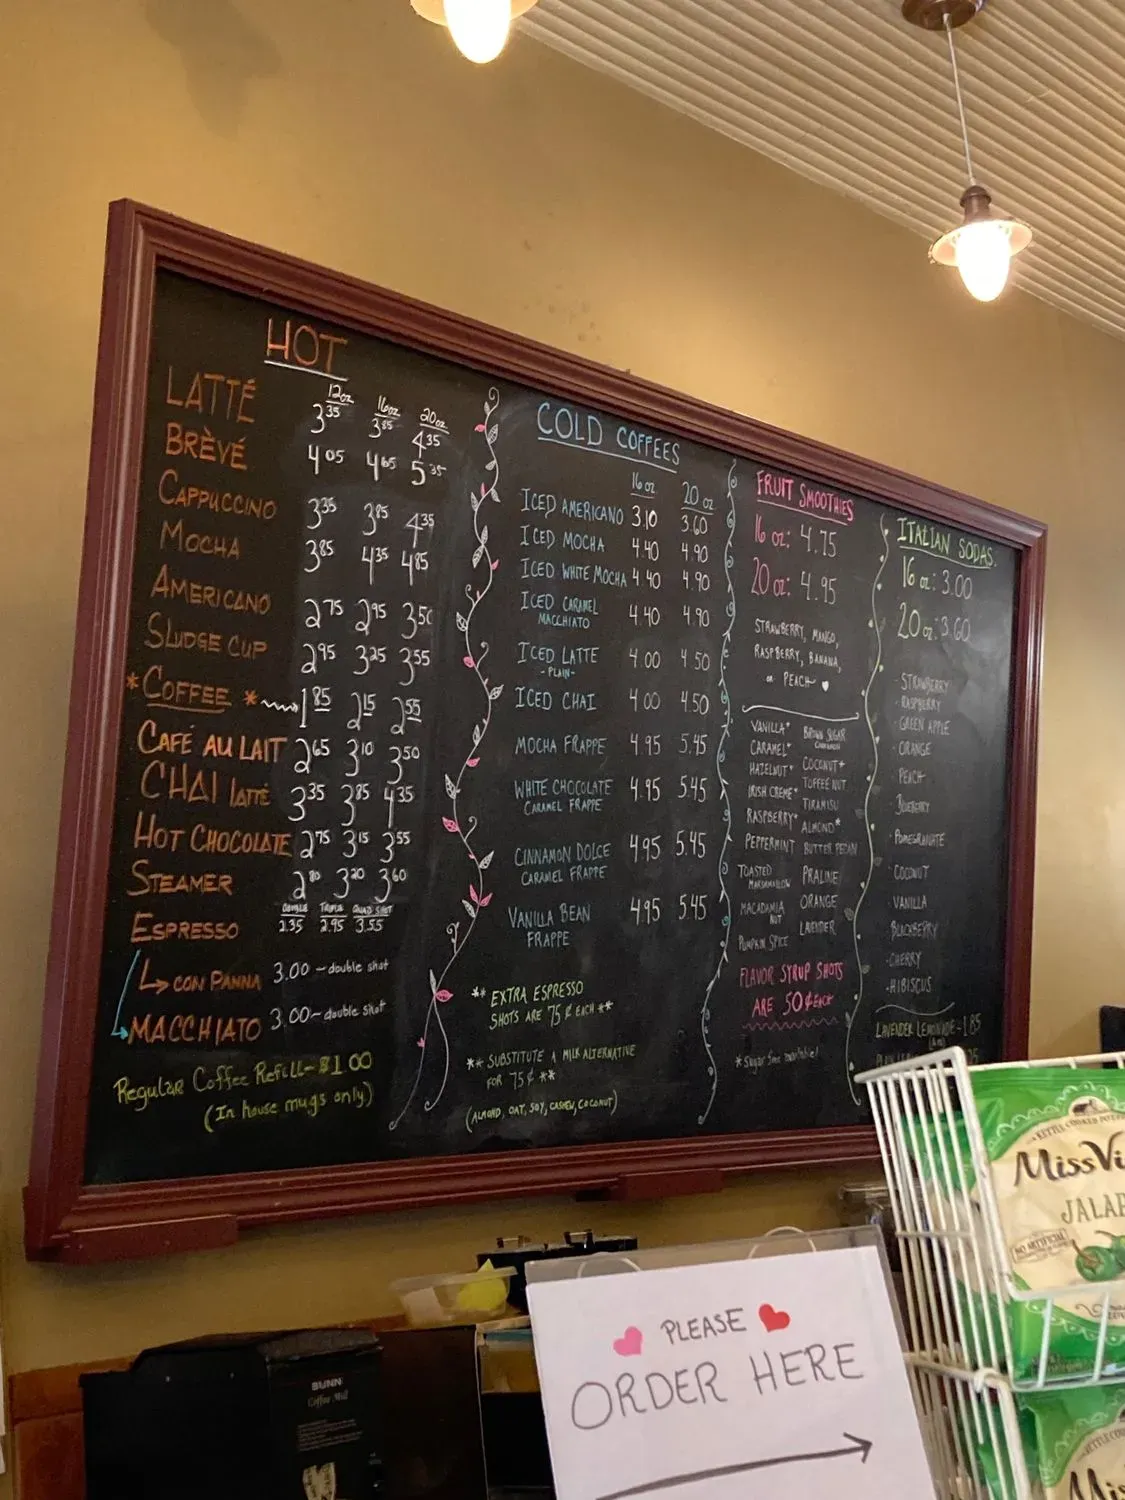 HOT
12oz 16oz 20oz
LATTÉ 3 35 3 85 4 35
BRÈVÉ 4 05 4 65 5 35
CAPPUCCINO 3 35 3 85 4 35
MOCHA 3 85 4 35 4 85
AMERICANO 2 75 2 95 3 50
SLUDGE CUP 2 95 3 25 3 55
*COFFEE* 1 85 2 15 2 55
CAFÉ AU LAIT 2 65 3 10 3 50
CHAI LATTÉ 3 35 3 85 4 35
HOT CHOCOLATE 2 75 3 15 3 55
STEAMER 2 80 3 20 3 60
DOUBLE TRIPLE QUAD SHOT
ESPRESSO 2.35 2.95 3.55
CON PANNA 3.00 ~ double shot
MACCHIATO 3.00 ~ double shot
Regular Coffee Refill ~ $1.00
(In house mugs only)
COLD COFFEES
16 oz 20 oz
ICED AMERICANO 3.10 3.60
ICED MOCHA 4.40 4.90
ICED WHITE MOCHA 4.40 4.90
ICED CARAMEL
MACCHIATO 4.40 4.90
ICED LATTE 4.00 4.50
-PLAIN-
ICED CHAI 4.00 4.50
MOCHA FRAPPE 4.95 5.45
WHITE CHOCOLATE 4.95 5.45
CARAMEL FRAPPE
CINNAMON DOLCE 4.95 5.45
CARAMEL FRAPPE
VANILLA BEAN 4.95 5.45
FRAPPE
** EXTRA ESPRESSO
SHOTS ARE 75¢ EACH **
** SUBSTITUTE A MILK ALTERNATIVE
FOR 75¢ **
(ALMOND, OAT, SOY, CASHEW, COCONUT)
FRUIT SMOOTHIES
16 oz: 4.75
20 oz: 4.95
STRAWBERRY, MANGO,
RASPBERRY, BANANA,
or PEACH ♥
VANILLA*
CARAMEL*
HAZELNUT*
IRISH CREME*
RASPBERRY*
PEPPERMINT
TOASTED
MARSHMALLOW
MACADAMIA
NUT
PUMPKIN SPICE
BROWN SUGAR
CINNAMON
COCONUT*
TOFFEE NUT
TIRAMISU
ALMOND*
BUTTER PECAN
PRALINE
ORANGE
LAVENDER
FLAVOR SYRUP SHOTS
ARE 50¢ EACH
*Sugar free available!
ITALIAN SODAS
16 oz: 3.00
20 oz: 3.60
- STRAWBERRY
- RASPBERRY
- GREEN APPLE
- ORANGE
PEACH
BLUEBERRY
- POMEGRANATE
COCONUT
VANILLA
BLACKBERRY
- CHERRY
- HIBISCUS
LAVENDER LEMONADE - 1.85
BUNN
Coffee Mill
PLEASE
ORDER HERE
KETTLE COOKED
Miss Vi
JALAP
NO ARTIFICIAL